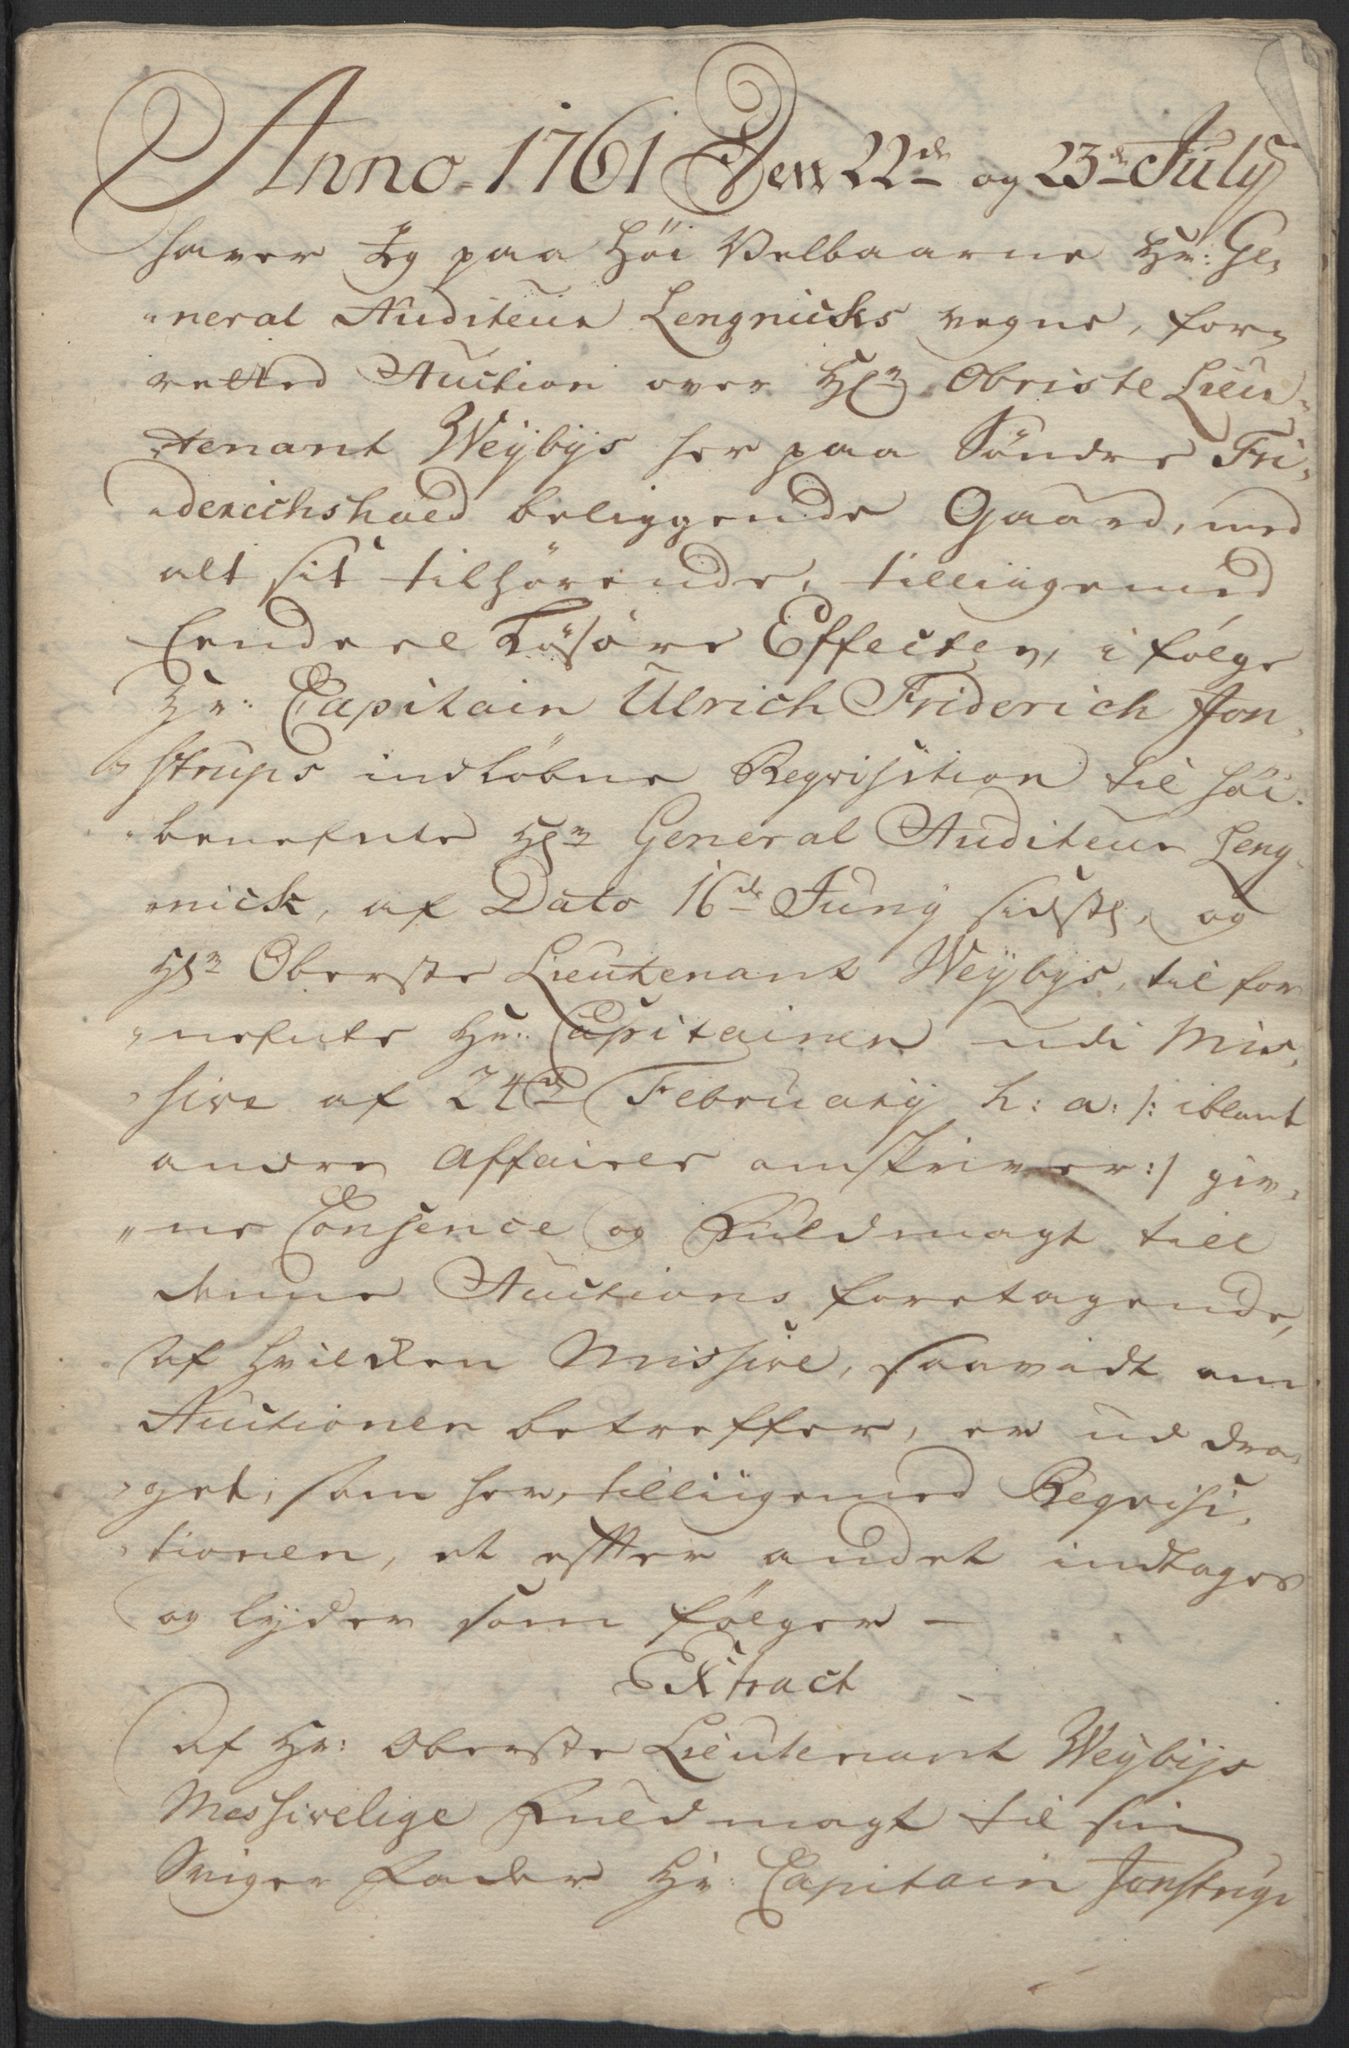 Anno 1761 Den 22de og 23de July
haver Jeg paa Höi Velbaarne Hr: Ge,
neral Auditeur Lengnicks vegne, for,
rettet Auction over Hr Obriste Lieu,
tenant Weÿbÿs her paa Söndre Fri,
derichshald beliggende Gaard, med
alt sit tilhörende, tilliigemed
hendeel Lösöre Effecter, i følge
Hr: Capitain Ulrich Friderich Jon,
strups indløbne Reqvisition til höi
benefnte Hr General Auditeur Leng,
nick, af Dato 16de Juny sidstl, og
Hr Oberste Lieutenant Weÿbÿs, til for
nefnte Hr: Capitainen udi Mis,
sive af 24de February h: a: /: iblant
andre Affairer omskriver :/ giv,
ne Consence og Fuldmagt till
denne Auctions foretagende,
Af hvilken Missive, saavidt om
Auctionen betreffer, er ud dra,
get, som her, tilliigemed Reqvisi,
tionen, et efter andet indtages
og lyder som følger —
Extract
Af Hr: Oberste Lieutenant Weÿbÿs
Missivelige Fuldmagt til sin
Sviger Fader Hr: Capitain Jonstrup